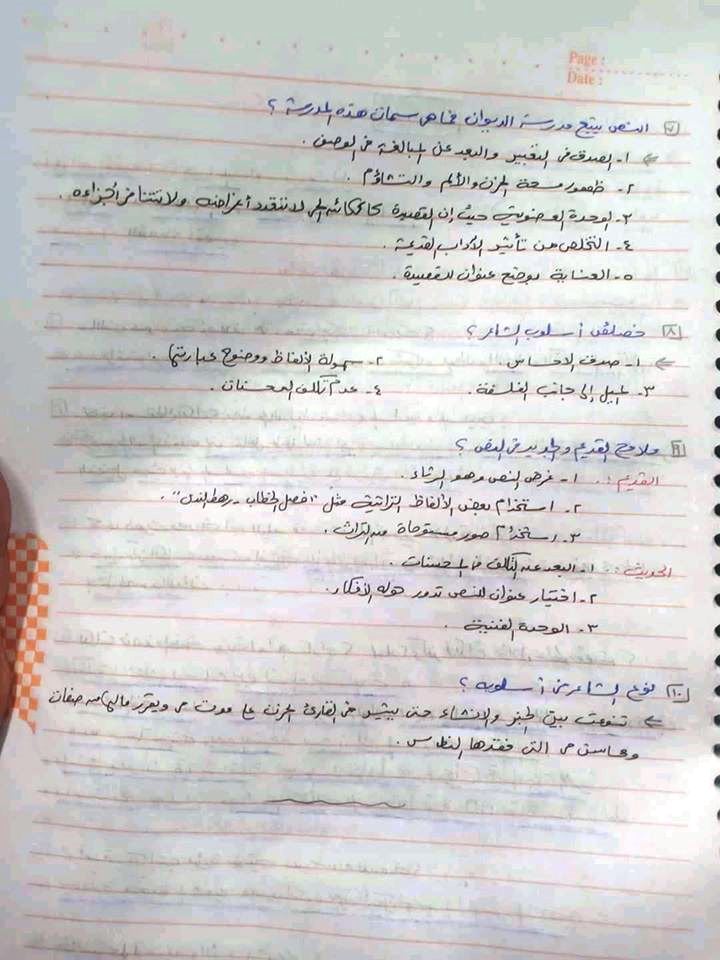 Page :
Date :
٧ النص يتبع مدرسة الديوان فما هى سمات هذه المدرسة ؟
١- الصدق فى التعبير والبعد عن المبالغة فى الوصف .
٢- ظهور مسحة الحزن والألم والتشاؤم .
٣- الوحدة العضوية حيث إن القصيدة كالكائن الحى لا تتعدد أغراضه ولا تتنافر أجزاءه .
٤- التخلص من تأثير الآداب القديمة .
٥- العناية بوضع عنوان للقصيدة .
٨ خصائص أسلوب الشاعر ؟
١- صدق الاحساس ٢- سهولة الألفاظ ووضوح عبارتها .
٣- الميل إلى جانب الفلسفة . ٤- عدم تكلف المحسنات .
٩ ملامح القديم والجديد فى النص ؟
القديم : ١- غرض النص وهو الرثاء .
٢- استخدام بعض الألفاظ التراثية مثل " فصل الخطاب - رهط الندى" .
٣- استخدام صور مستوحاة من التراث .
الحديث : ١- البعد عن التكلف فى المحسنات .
٢- اختيار عنوان للنص تدور حوله الأفكار .
٣- الوحدة الفنية .
١٠ نوع الشاعر فى أسلوبه ؟
تنوعت بين الخبر والانشاء حتى يثير فى القارئ الحزن على موت مى ويقرر مالها من صفات
ومحاسن مى التى فقدها الناس .